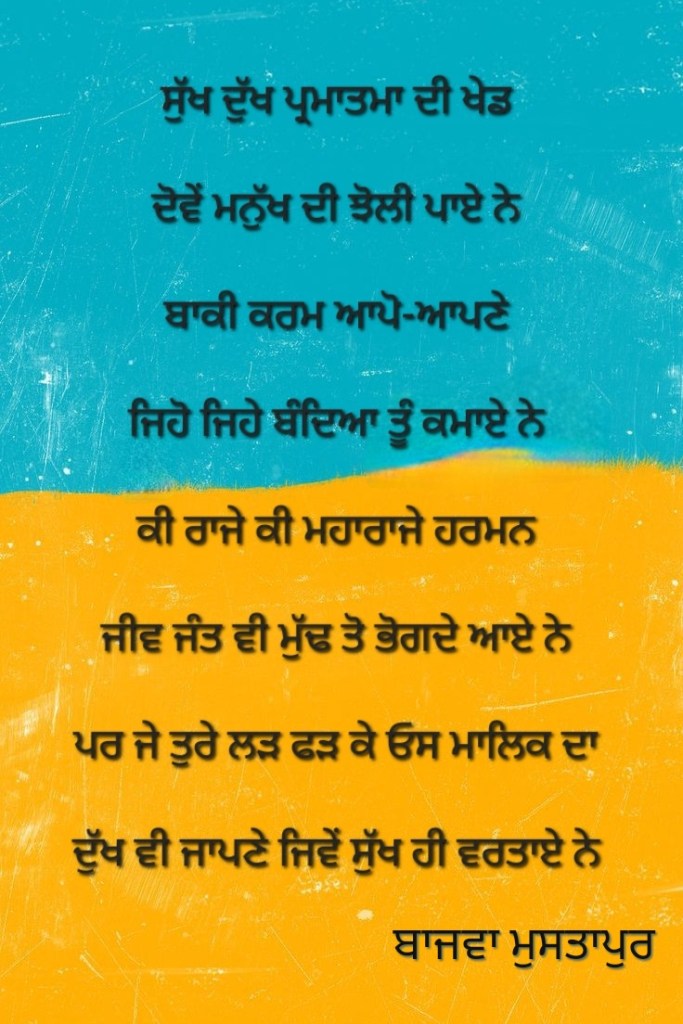 ਸੁੱਖ ਦੁੱਖ ਪ੍ਰਮਾਤਮਾ ਦੀ ਖੇਡ
ਦੋਵੇਂ ਮਨੁੱਖ ਦੀ ਝੋਲੀ ਪਾਏ ਨੇ
ਬਾਕੀ ਕਰਮ ਆਪੋ-ਆਪਣੇ
ਜਿਹੋ ਜਿਹੇ ਬੰਦਿਆ ਤੂੰ ਕਮਾਏ ਨੇ
ਕੀ ਰਾਜੇ ਕੀ ਮਹਾਰਾਜੇ ਹਰਮਨ
ਜੀਵ ਜੰਤ ਵੀ ਮੁੱਢ ਤੋ ਭੋਗਦੇ ਆਏ ਨੇ
ਪਰ ਜੇ ਤੁਰੇ ਲੜ ਫੜ ਕੇ ਓਸ ਮਾਲਿਕ ਦਾ
ਦੁੱਖ ਵੀ ਜਾਪਣੇ ਜਿਵੇਂ ਸੁੱਖ ਹੀ ਵਰਤਾਏ ਨੇ
ਬਾਜਵਾ ਮੁਸਤਾਪੁਰ